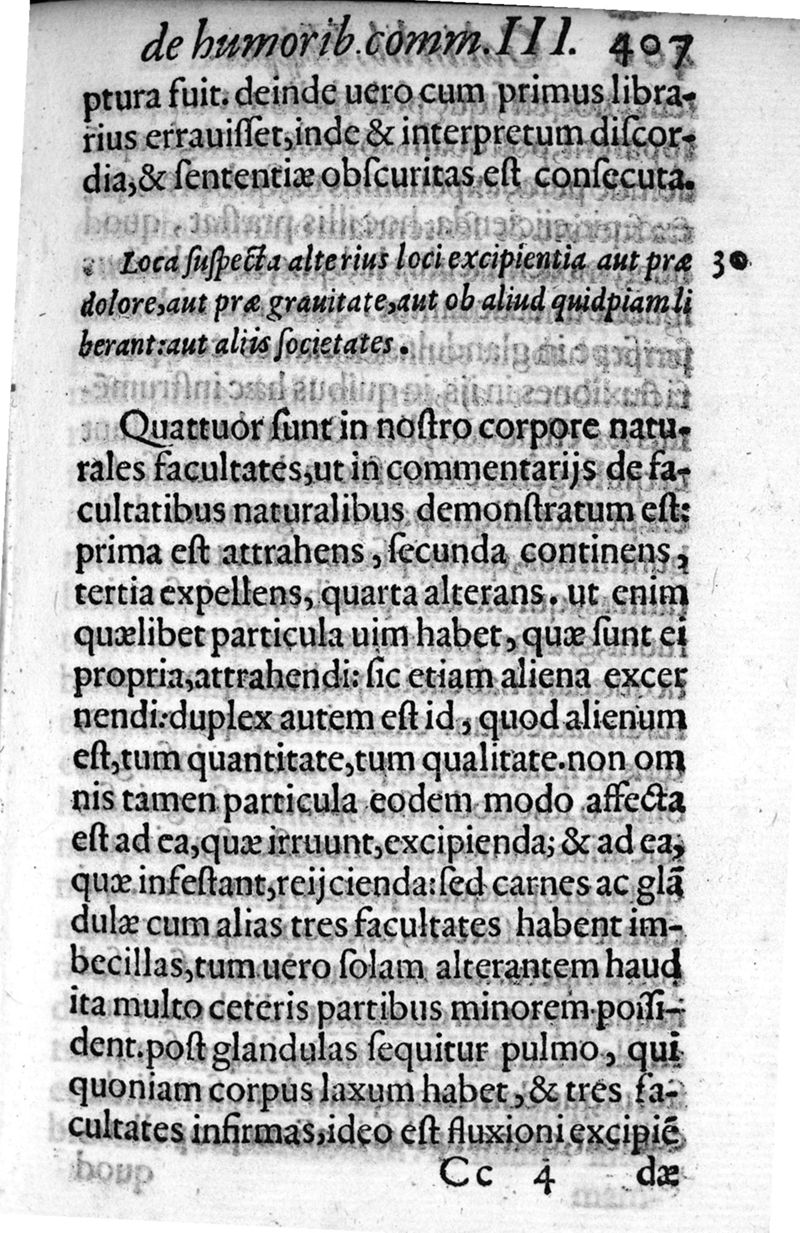 de humorib. comm. III. 407
ptura fuit. deinde uero cum primus libra-
rius errauiſſet, inde & interpretum diſcor-
dia, & ſententiæ obſcuritas eſt conſecuta.
Loca ſuſpecta alterius loci excipientia aut præ 30
dolore, aut præ grauitate, aut ob aliud quidpiam li
berant: aut aliis ſocietates.
Quattuor ſunt in noſtro corpore natu-
rales facultates, ut in commentarijs de fa-
cultatibus naturalibus demonſtratum eſt:
prima eſt attrahens, ſecunda continens,
tertia expellens, quarta alterans. ut enim
quælibet particula uim habet, quæ ſunt ei
propria, attrahendi: ſic etiam aliena excer
nendi: duplex autem eſt id, quod alienum
eſt, tum quantitate, tum qualitate. non om
nis tamen particula eodem modo affecta
eſt ad ea, quæ irruunt, excipienda; & ad ea,
quæ infeſtant, reijcienda: ſed carnes ac glã
dulæ cum alias tres facultates habent im-
becillas, tum uero ſolam alterantem haud
ita multo ceteris partibus minorem poſſi-
dent. poſt glandulas ſequitur pulmo, qui
quoniam corpus laxum habet, & tres fa-
cultates infirmas, ideo eſt fluxioni excipiẽ
Cc 4 dæ